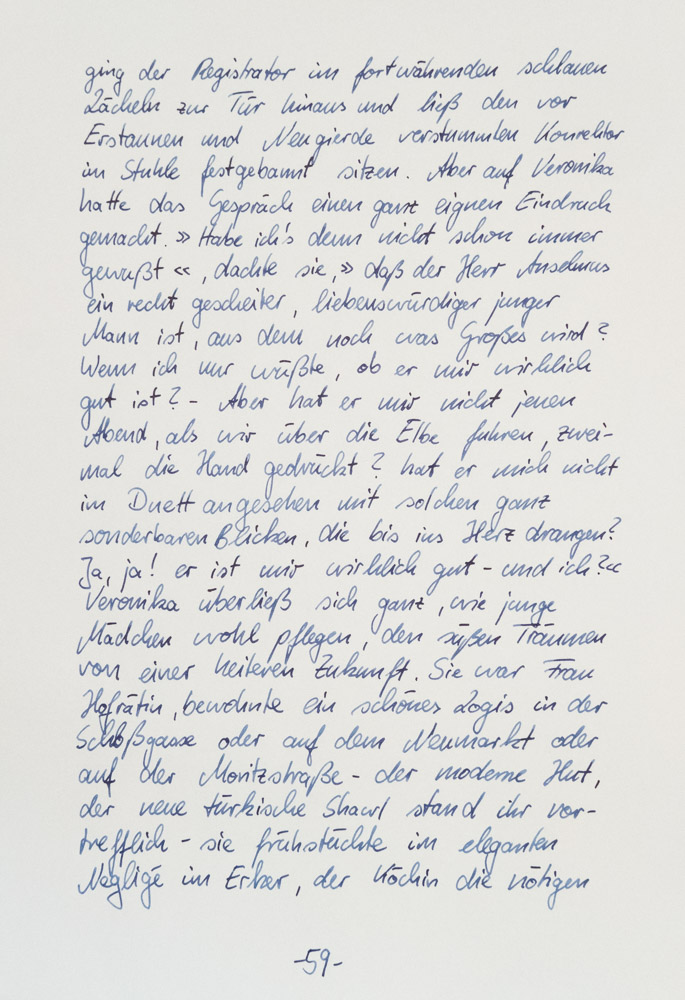 ging der Registrator im fortwährenden schlauen
Lächeln zur Tür hinaus und ließ den vor
Erstaunen und Neugierde verstummten Konrektor
im Stuhle festgebannt sitzen. Aber auf Veronika
hatte das Gespräch einen ganz eignen Eindruck
gemacht. » Habe ich's denn nicht schon immer
gewußt « , dachte sie, » daß der Herr Anselmus
ein recht gescheiter, liebenswürdiger junger
Mann ist, aus dem noch was Großes wird?
Wenn ich nur wüßte, ob er mir wirklich
gut ist? - Aber hat er mir nicht jenen
Abend, als wir über die Elbe fuhren, zwei-
mal die Hand gedrückt? hat er mich nicht
im Duett angesehen mit solchen ganz
sonderbaren Blicken, die bis ins Herz drangen?
Ja, ja! er ist mir wirklich gut - und ich?«
Veronika überließ sich ganz, wie junge
Mädchen wohl pflegen, den süßen Träumen
von einer heiteren Zukunft. Sie war Frau
Hofrätin, bewohnte ein schönes Logis in der
Schloßgasse oder auf dem Neumarkt oder
auf der Moritzstraße - der moderne Hut,
der neue türkische Shawl stand ihr vor-
trefflich - sie frühstückte im eleganten
Negligé im Erker, der Köchin die nötigen
-59-